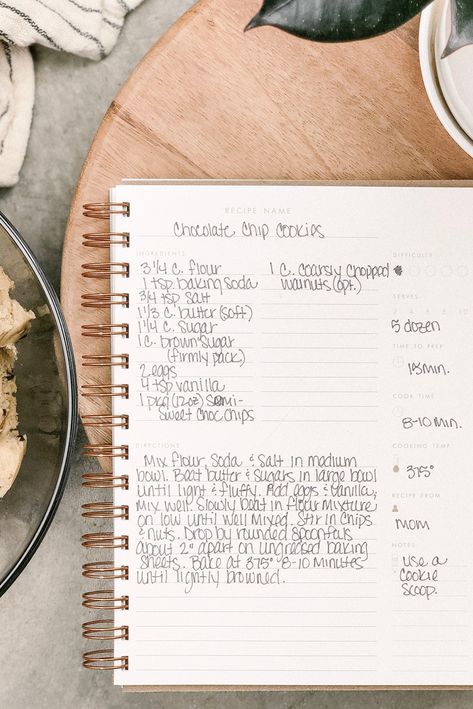 RECIPE NAME
Chocolate Chip Cookies
INGREDIENTS
3 1/4 c. flour
1 tsp baking soda
3/4 tsp salt
1 1/3 c. butter (soft)
1 1/4 c. sugar
1 c. brown sugar
(firmly pack)
2 eggs
4 tsp vanilla
1 pkg (12oz) semi-
sweet choc chips
1 c. coarsly chopped
walnuts (opt.)
DIFFICULTY
SERVES
2 4 6 8 10
5 dozen
TIME TO PREP
15 min.
COOK TIME
8-10 min.
COOKING TEMP
375°
RECIPE FROM
mom
NOTES
use a
cookie
scoop.
DIRECTIONS
Mix flour, soda & salt in medium
bowl. Beat butter & sugars in large bowl
until light & fluffy. Add eggs & vanilla;
mix well. Slowly beat in flour mixture
on low until well mixed. Stir in chips
& nuts. Drop by rounded spoonfuls
about 2" apart on ungreased baking
sheets. Bake at 375° 8-10 minutes
until lightly browned.